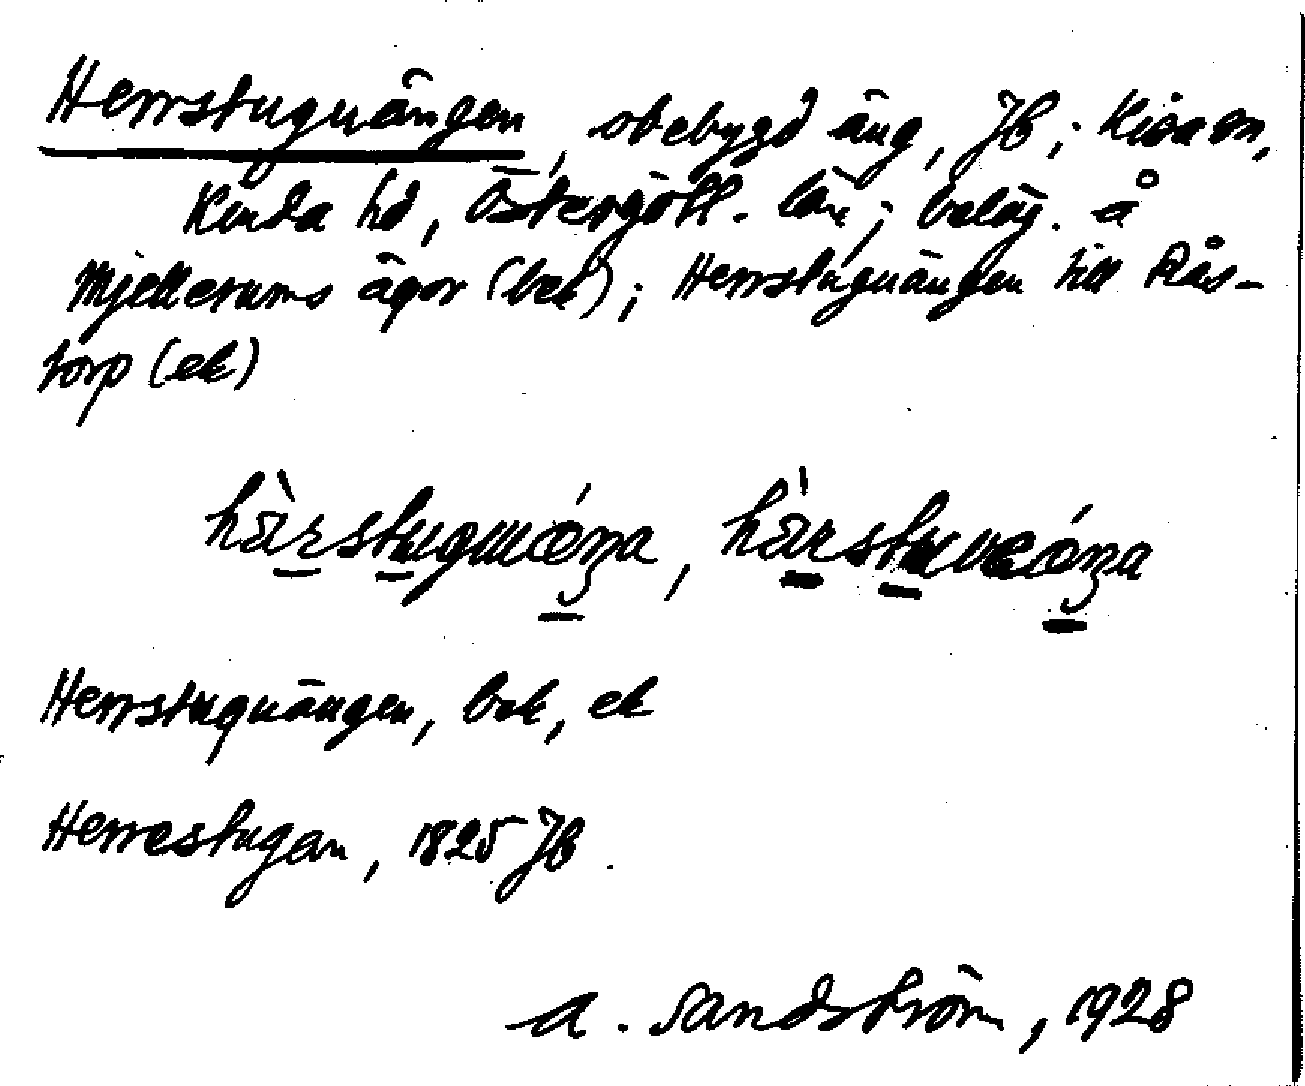 Herrstuguängen, obebygd äng, JB; Kisa sn,
Kinda hd, Östergötl. län; beläg. å
Mjellerums ägor (bek); Herrstuguängen till Rås-
torp (ek)
Herrstuguängen, bek, ek
Herrestugan, 1825 JB.
A. Sandström, 1928